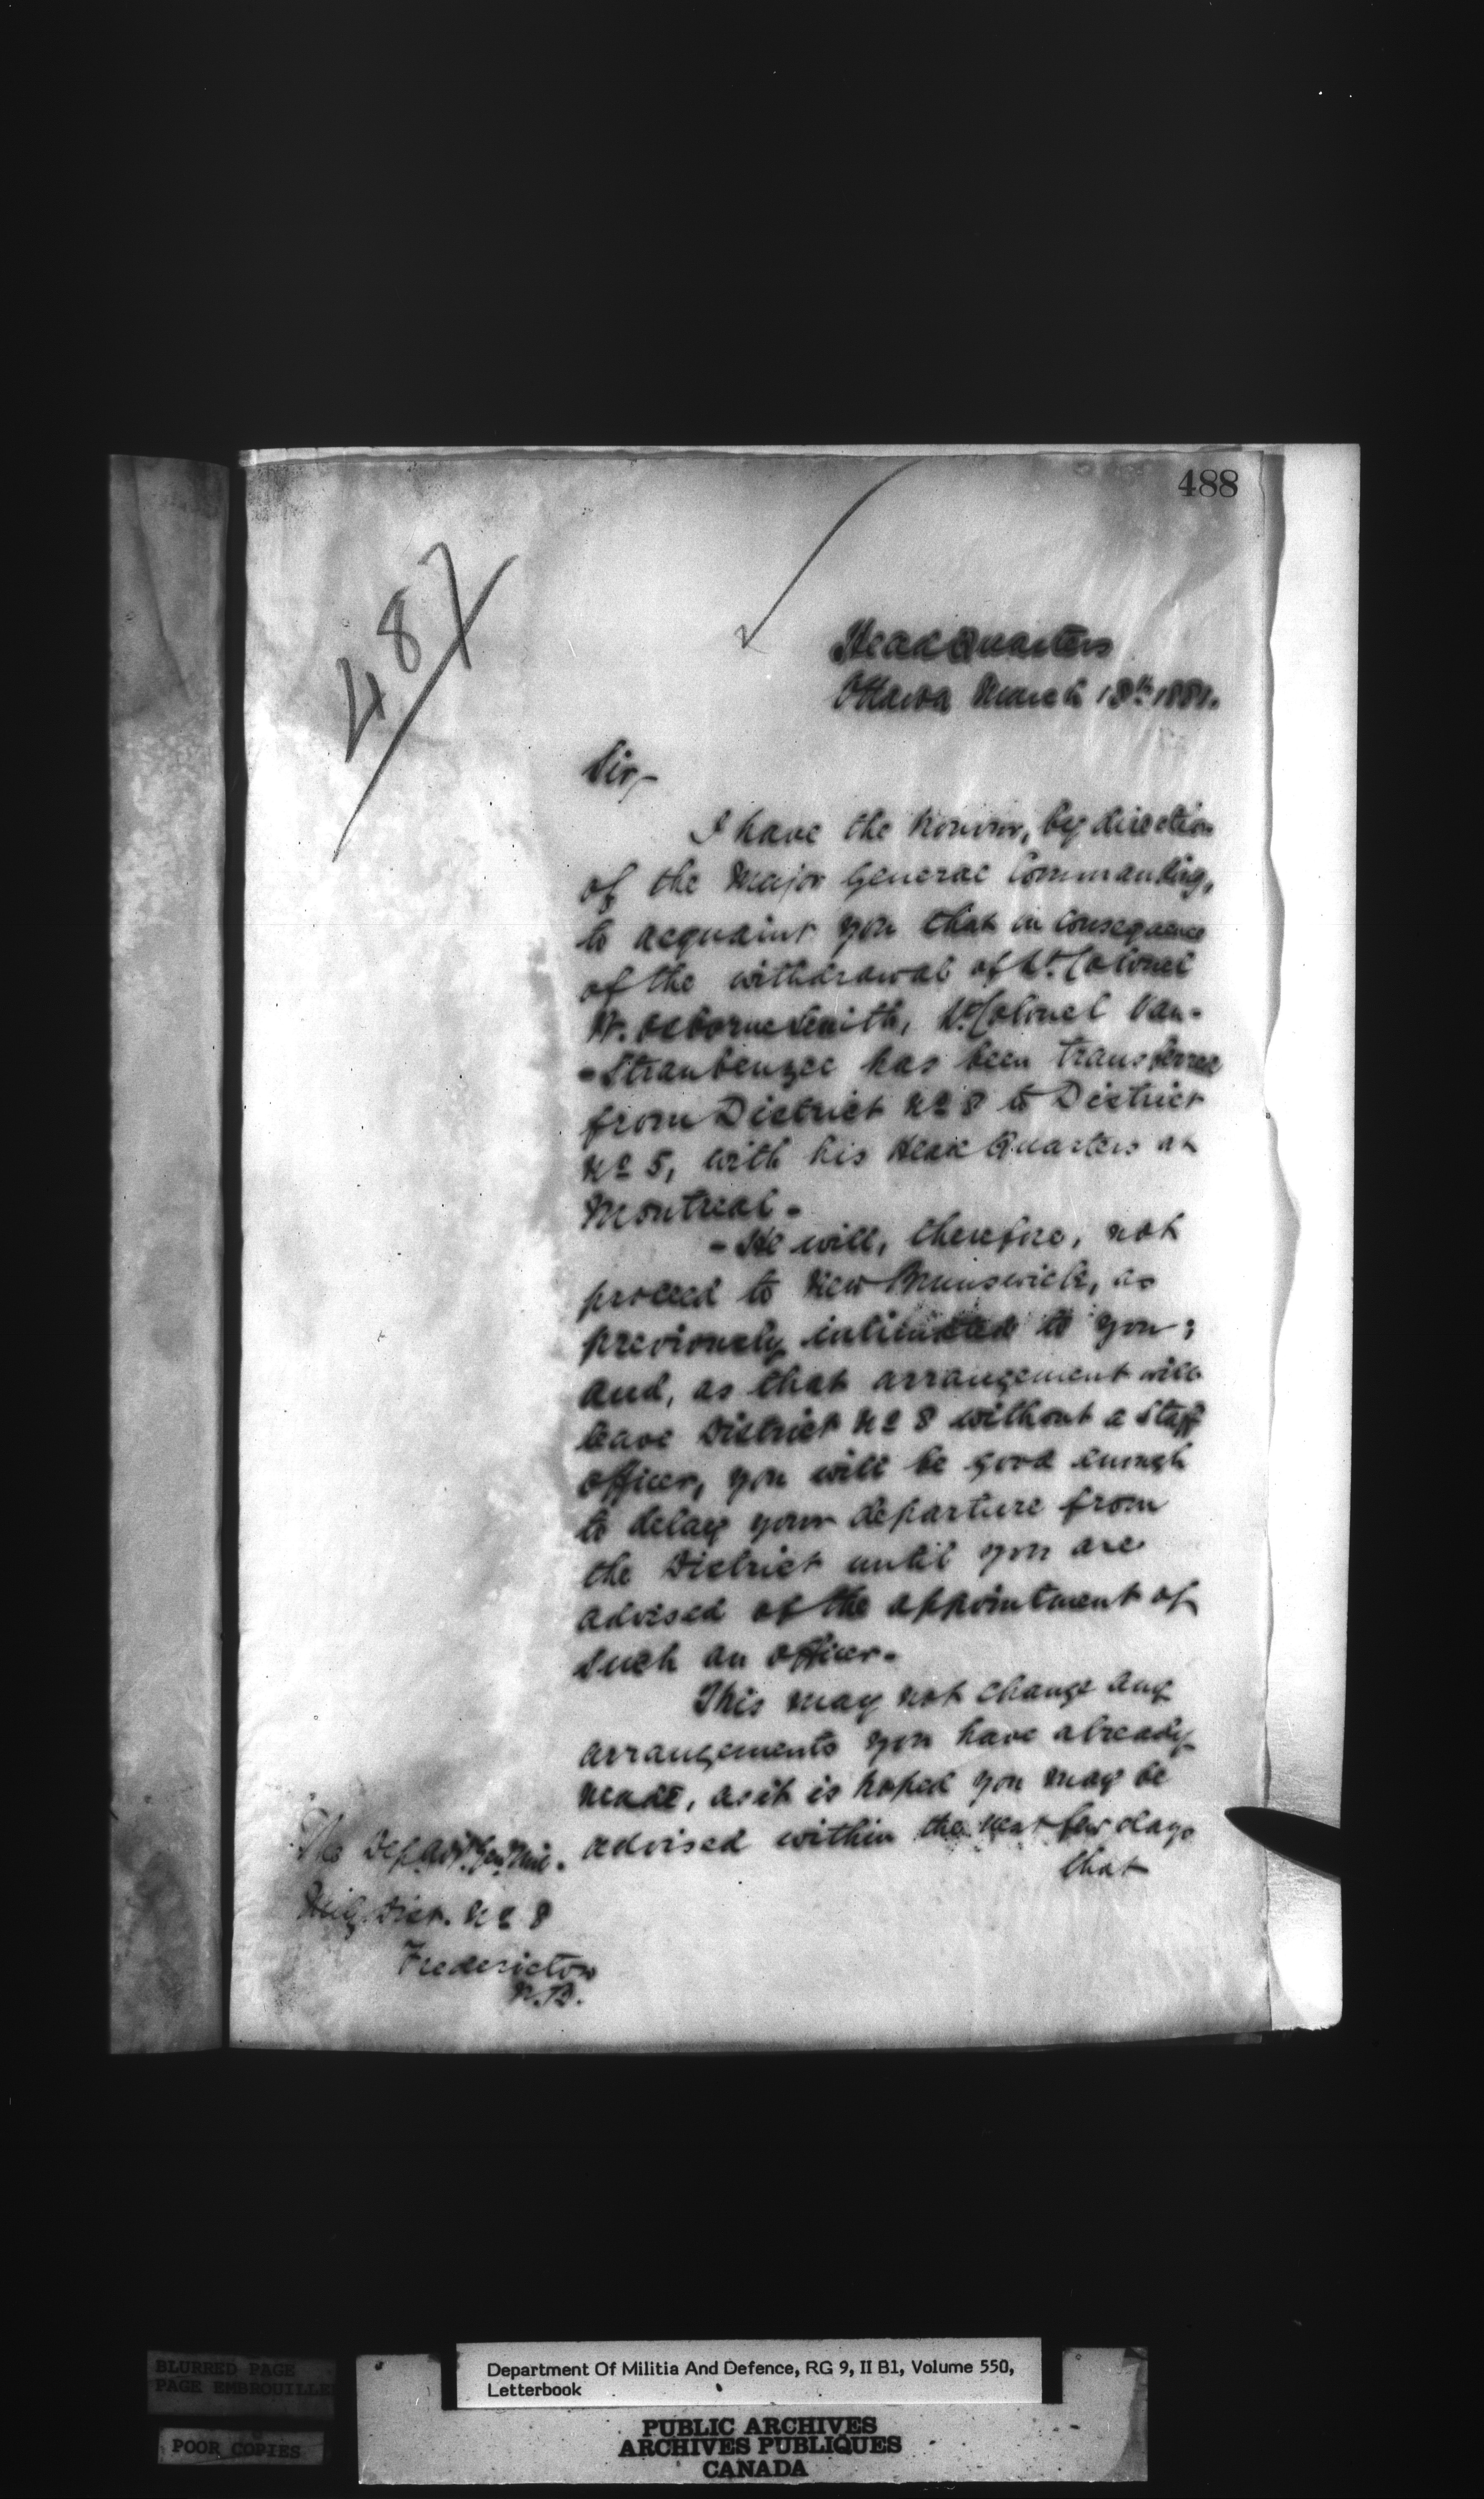 488
487
Head Quarters
Ottawa March 18th 1881.
Sir,-
I have the honour, by direction
of the Major General Commanding,
to acquaint you that in consequence
of the withdrawal of Lt. Colonel
W. Osborne Smith, Lt. Colonel Van-
-Straubenzee has been transferred
from District No 8 to District
No 5, with his Head Quarters at
Montreal -
- He will, therefore, not
proceed to New Brunswick, as
previously intimated to you;
and, as that arrangement will
leave District No 8 without a Staff
officer, you will be good enough
to delay your departure from
the District until you are
advised of the appointment of
such an officer.
This may not change any
arrangements you have already
made, as it is hoped you may be
advised within the next few days
that
The Dep. Adjt. Genl. Mil.
Mily. Dist. No 8
Fredericton
N.B.
BLURRED PAGE
PAGE EMBROUILLE
POOR COPIES
Department Of Militia And Defence, RG 9, II B1, Volume 550,
Letterbook
PUBLIC ARCHIVES
ARCHIVES PUBLIQUES
CANADA